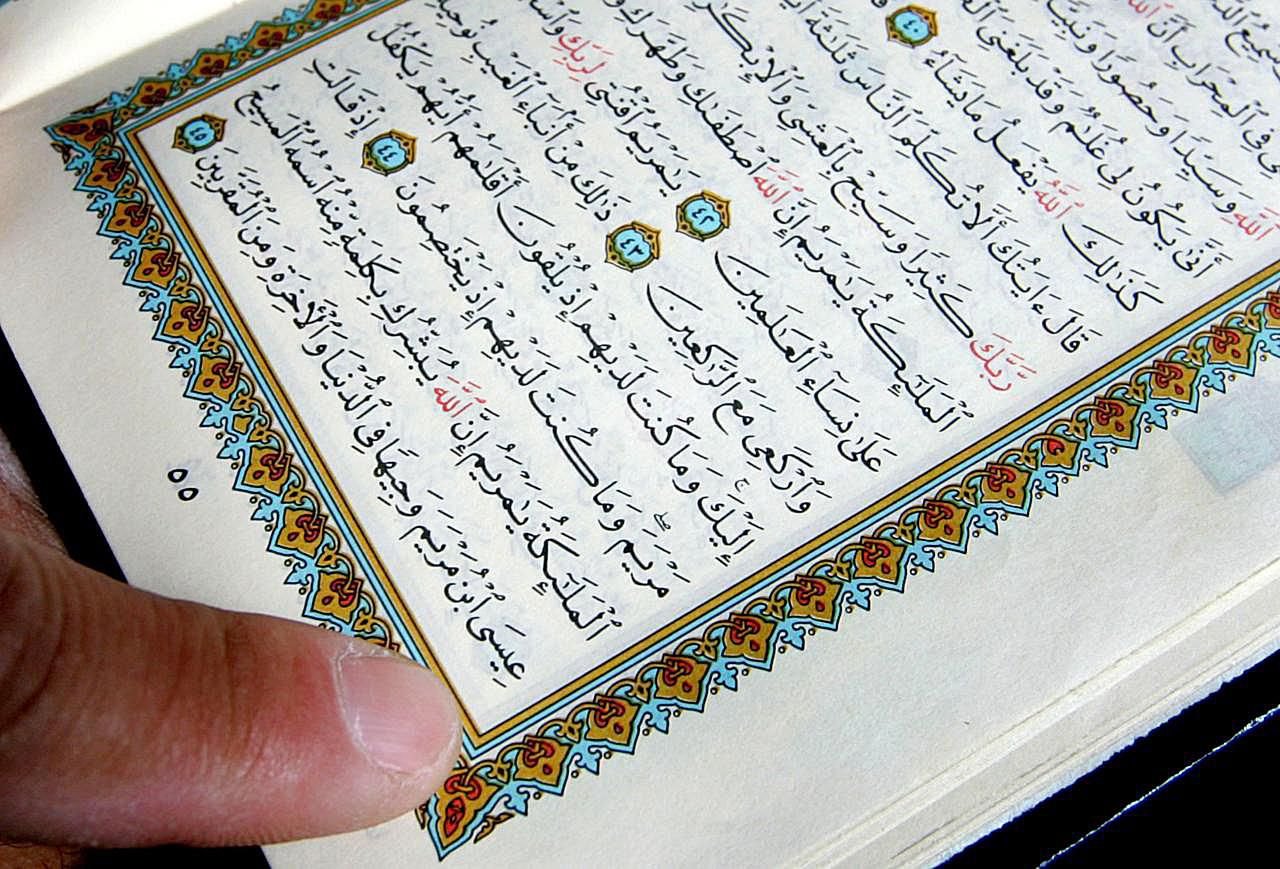 سَمِيعُ
فِى ٱلْمِحْرَابِ أَنَّ ٱللَّهَ
ٱللَّهِ وَسَيِّدًا وَحَصُورًا
أَنَّىٰ يَكُونُ لِى غُلَـٰمٌ وَقَدْ بَلَغَنِىَ
كَذَٰلِكَ ٱللَّهُ يَفْعَلُ مَا يَشَآءُ ٤٠
قَالَ ءَايَتُكَ أَلَّا تُكَلِّمَ ٱلنَّاسَ ثَلَـٰثَةَ
رَّبَّكَ كَثِيرًا وَسَبِّحْ بِٱلْعَشِىِّ وَٱلْإِبْكَـٰرِ
ٱلْمَلَـٰٓئِكَةُ يَـٰمَرْيَمُ إِنَّ ٱللَّهَ ٱصْطَفَىٰكِ وَطَهَّرَكِ
عَلَىٰ نِسَآءِ ٱلْعَـٰلَمِينَ ٤٢ يَـٰمَرْيَمُ ٱقْنُتِى لِرَبِّكِ
وَٱرْكَعِى مَعَ ٱلرَّٰكِعِينَ ٤٣ ذَٰلِكَ مِنْ أَنۢبَآءِ ٱلْغَيْبِ نُوحِيهِ
إِلَيْكَ ۚ وَمَا كُنتَ لَدَيْهِمْ إِذْ يُلْقُونَ أَقْلَـٰمَهُمْ أَيُّهُمْ يَكْفُلُ
مَرْيَمَ ۖ وَمَا كُنتَ لَدَيْهِمْ إِذْ يَخْتَصِمُونَ ٤٤ إِذْ قَالَتِ
ٱلْمَلَـٰٓئِكَةُ يَـٰمَرْيَمُ إِنَّ ٱللَّهَ يُبَشِّرُكِ بِكَلِمَةٍ مِّنْهُ ٱسْمُهُ ٱلْمَسِيحُ
عِيسَى ٱبْنُ مَرْيَمَ وَجِيهًا فِى ٱلدُّنْيَا وَٱلْأَخِرَةِ وَمِنَ ٱلْمُقَرَّبِينَ ٤٥
٥٥